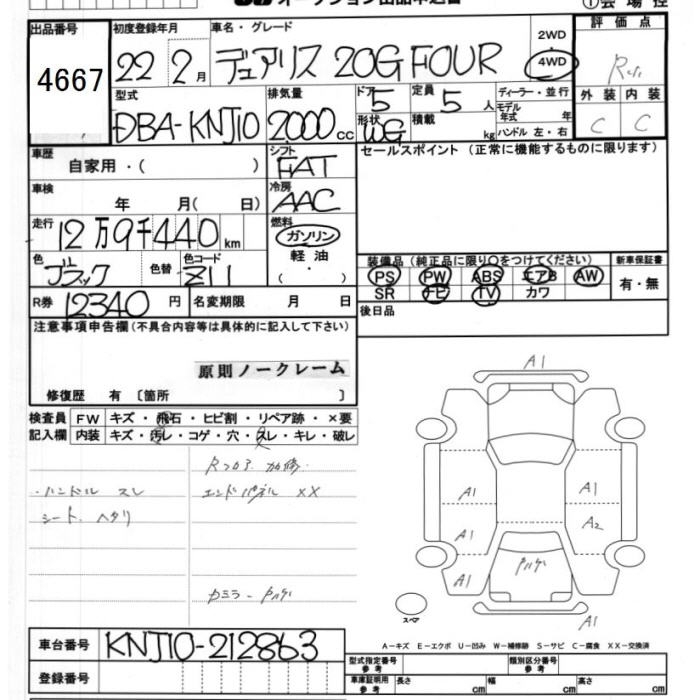 ①会場控
出品番号 初度登録年月 車名・グレード 2WD 評価点
4667 22 2月 デュアリス 20G FOUR 4WD
型式 排気量 ドア 5 定員 5人 ディーラー・並行 外装 内装
モデル年式 年
DBA-KNJ10 2000cc 形状 WG 積載 kg ハンドル 左・右 C C
車歴 シフト セールスポイント (正常に機能するものに限ります)
自家用・( ) FAT
車検 冷房
年 月( 日) AAC
走行 12万9千440km 燃料
ガソリン
色 ブラック 色替 色コード Z11 軽油 装備品 (純正品に限り○をつけてください) 新車保証書
・ PS PW ABS エアB AW 有・無
( ) SR ナビ TV カワ
R券 12340円 名変期限 月 日 後日品
注意事項申告欄(不具合内容等は具体的に記入して下さい)
原則ノークレーム
修復歴 有 [箇所 ]
A1
検査員 FW キズ・飛石・ヒビ割・リペア跡・×要
記入欄 内装 キズ・汚レ・コゲ・穴・スレ・キレ・破レ
Rフロア 加修.
・ハンドル スレ エンドパネル XX
A1 A1
シート ヘタリ
A1 A2
A1
スペア
A1
車台番号 KNJ10-212863
A-キズ E-エクボ U-凹み W-補修跡 S-サビ C-腐食 XX-交換済
登録番号 型式指定番号 参考 類別区分番号 参考
車庫証明用 参考 長さ cm 幅 cm 高さ cm